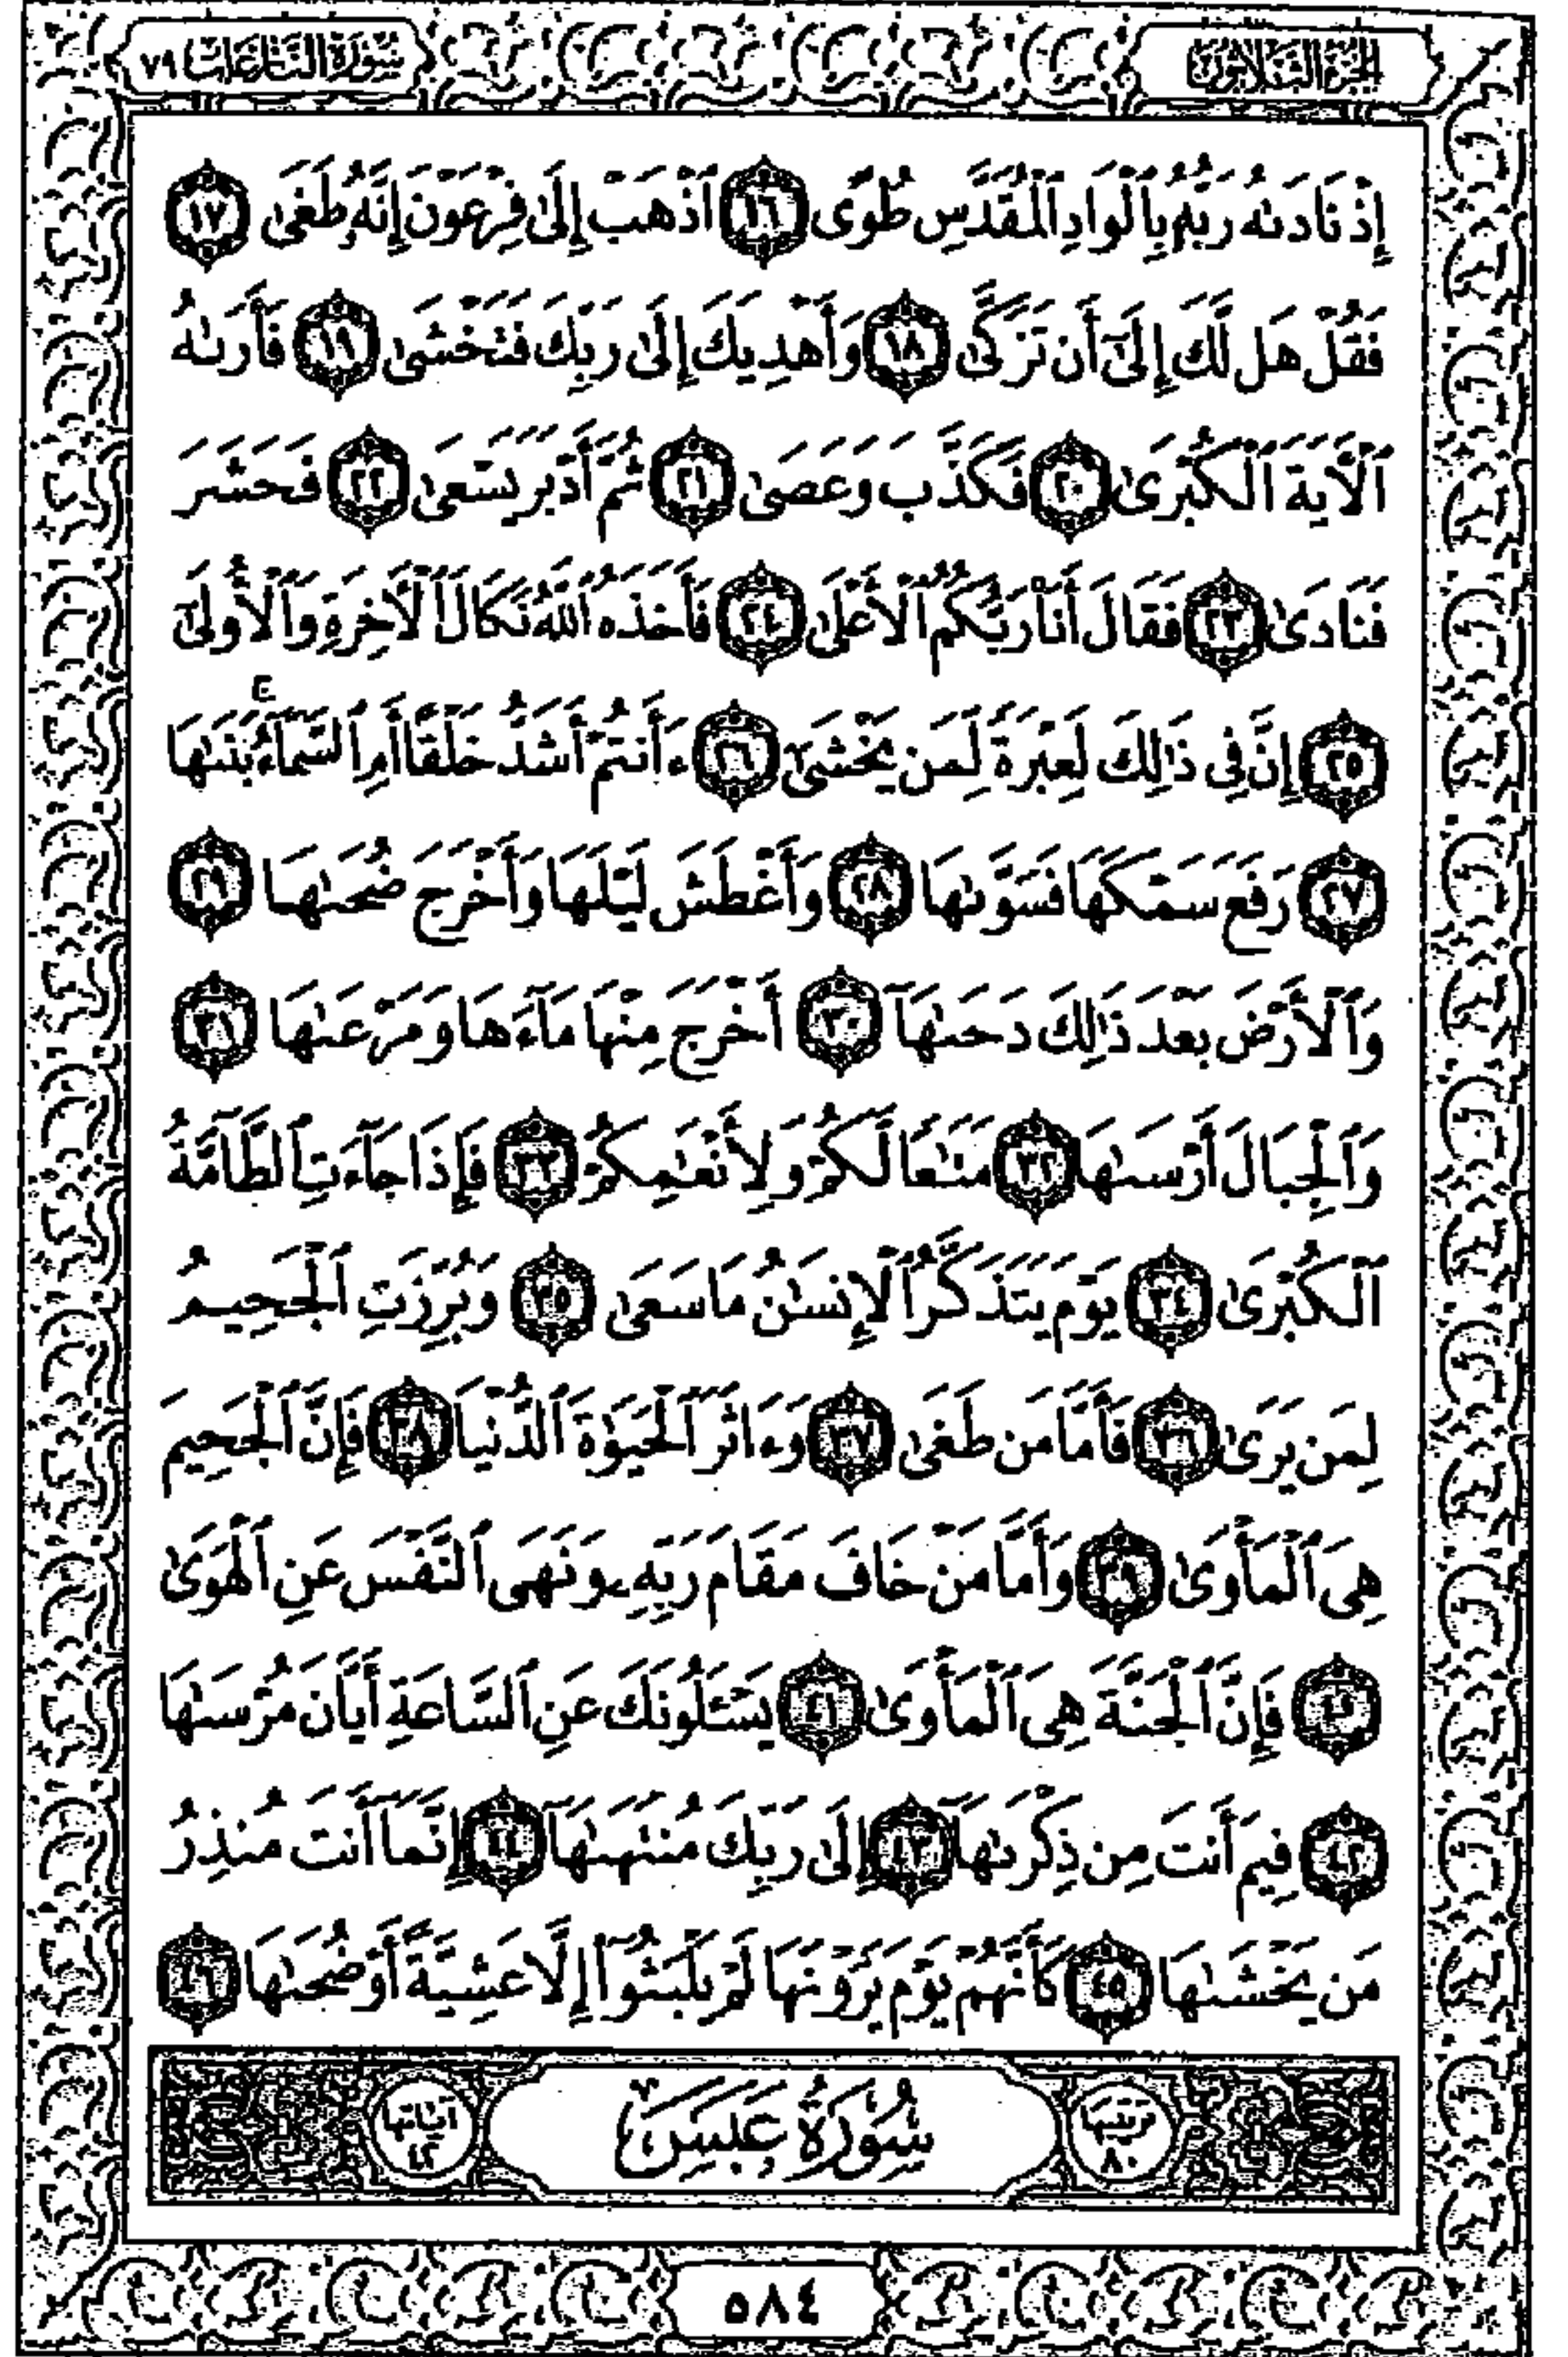 الجزء الثلاثون
سورة النازعات ٧٩
إِذْ نَادَىٰهُ رَبُّهُۥ بِٱلْوَادِ ٱلْمُقَدَّسِ طُوًى ١٦ ٱذْهَبْ إِلَىٰ فِرْعَوْنَ إِنَّهُۥ طَغَىٰ ١٧
فَقُلْ هَل لَّكَ إِلَىٰٓ أَن تَزَكَّىٰ ١٨ وَأَهْدِيَكَ إِلَىٰ رَبِّكَ فَتَخْشَىٰ ١٩ فَأَرَىٰهُ
ٱلْأَيَةَ ٱلْكُبْرَىٰ ٢٠ فَكَذَّبَ وَعَصَىٰ ٢١ ثُمَّ أَدْبَرَ يَسْعَىٰ ٢٢ فَحَشَرَ
فَنَادَىٰ ٢٣ فَقَالَ أَنَا۠ رَبُّكُمُ ٱلْأَعْلَىٰ ٢٤ فَأَخَذَهُ ٱللَّهُ نَكَالَ ٱلْأَخِرَةِ وَٱلْأُولَىٰٓ
٢٥ إِنَّ فِى ذَٰلِكَ لَعِبْرَةً لِّمَن يَخْشَىٰٓ ٢٦ ءَأَنتُمْ أَشَدُّ خَلْقًا أَمِ ٱلسَّمَآءُ ۚ بَنَىٰهَا
٢٧ رَفَعَ سَمْكَهَا فَسَوَّىٰهَا ٢٨ وَأَغْطَشَ لَيْلَهَا وَأَخْرَجَ ضُحَىٰهَا ٢٩
وَٱلْأَرْضَ بَعْدَ ذَٰلِكَ دَحَىٰهَآ ٣٠ أَخْرَجَ مِنْهَا مَآءَهَا وَمَرْعَىٰهَا ٣١
وَٱلْجِبَالَ أَرْسَىٰهَا ٣٢ مَتَٰعًا لَّكُمْ وَلِأَنْعَٰمِكُمْ ٣٣ فَإِذَا جَآءَتِ ٱلطَّآمَّةُ
ٱلْكُبْرَىٰ ٣٤ يَوْمَ يَتَذَكَّرُ ٱلْإِنسَٰنُ مَا سَعَىٰ ٣٥ وَبُرِّزَتِ ٱلْجَحِيمُ
لِمَن يَرَىٰ ٣٦ فَأَمَّا مَن طَغَىٰ ٣٧ وَءَاثَرَ ٱلْحَيَوٰةَ ٱلدُّنْيَا ٣٨ فَإِنَّ ٱلْجَحِيمَ
هِىَ ٱلْمَأْوَىٰ ٣٩ وَأَمَّا مَنْ خَافَ مَقَامَ رَبِّهِۦ وَنَهَى ٱلنَّفْسَ عَنِ ٱلْهَوَىٰ
٤٠ فَإِنَّ ٱلْجَنَّةَ هِىَ ٱلْمَأْوَىٰ ٤١ يَسْـَٔلُونَكَ عَنِ ٱلسَّاعَةِ أَيَّانَ مُرْسَىٰهَا
٤٢ فِيمَ أَنتَ مِن ذِكْرَىٰهَآ ٤٣ إِلَىٰ رَبِّكَ مُنتَهَىٰهَآ ٤٤ إِنَّمَآ أَنتَ مُنذِرُ
مَن يَخْشَىٰهَا ٤٥ كَأَنَّهُمْ يَوْمَ يَرَوْنَهَا لَمْ يَلْبَثُوٓا۟ إِلَّا عَشِيَّةً أَوْ ضُحَىٰهَا ٤٦
ترتيبها ٨٠ سُورَةُ عَبَسَ آياتها ٤٢
٥٨٤